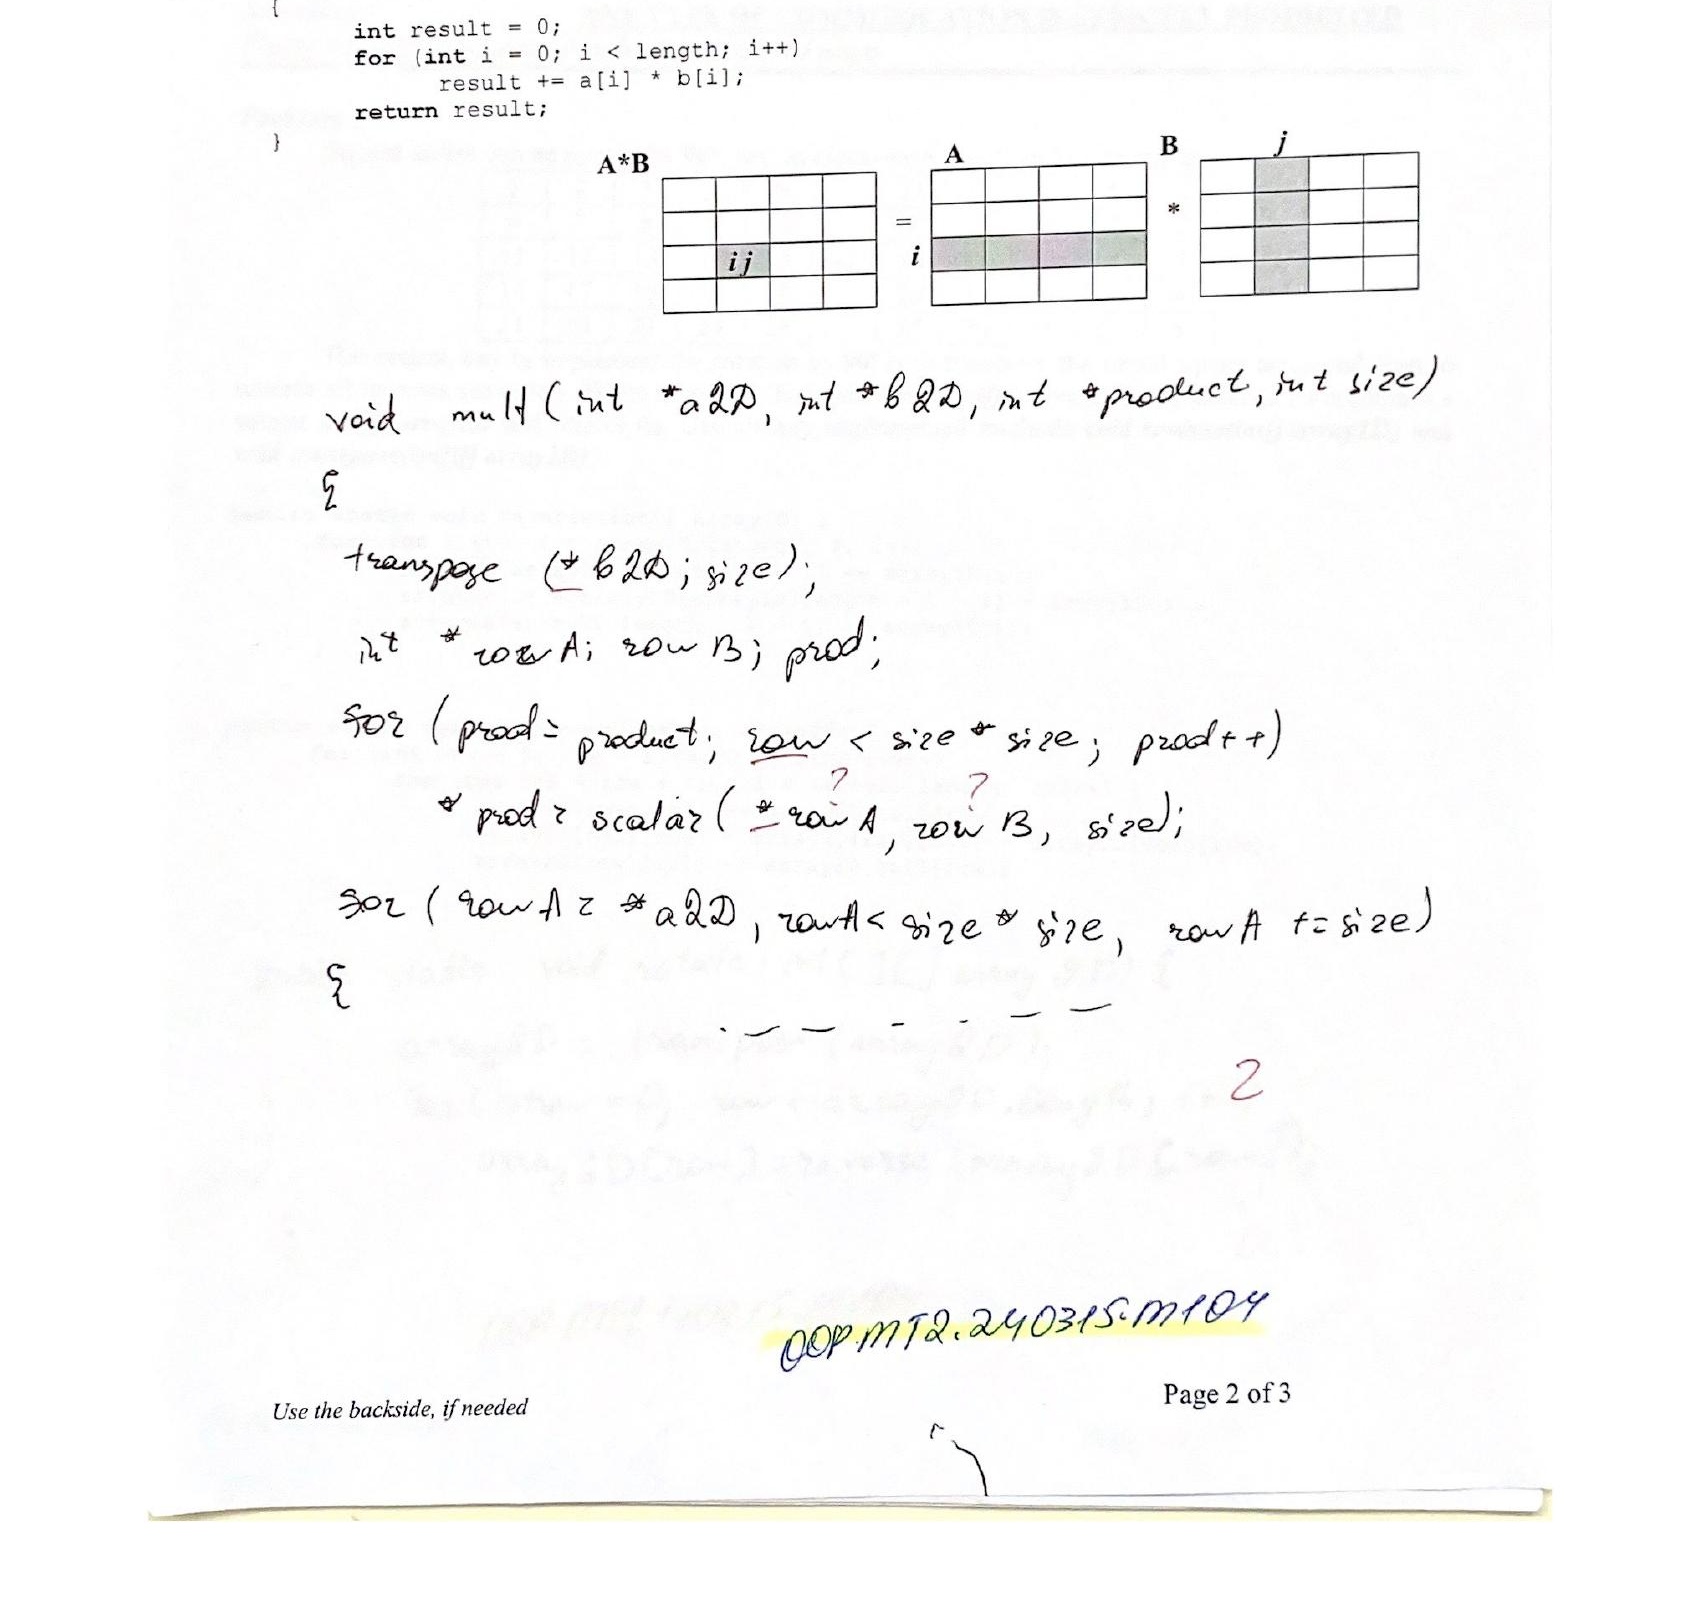 {
int result = 0;
for (int i = 0; i < length; i++)
result += a[i] * b[i];
return result;
}
A*B
A
B
j
=
*
ij
i
void mult (int *a2D, int *b2D, int *product, int size)
{
transpose (* b2D; size);
int * rowA; row B; prod;
for (prod = product; row < size * size; prod++)
? ?
* prod = scalar ( * row A, row B, size);
for ( row A = * a2D, rowA < size * size, row A += size)
{
2
OOP.MT2.240315.M104
Use the backside, if needed
Page 2 of 3